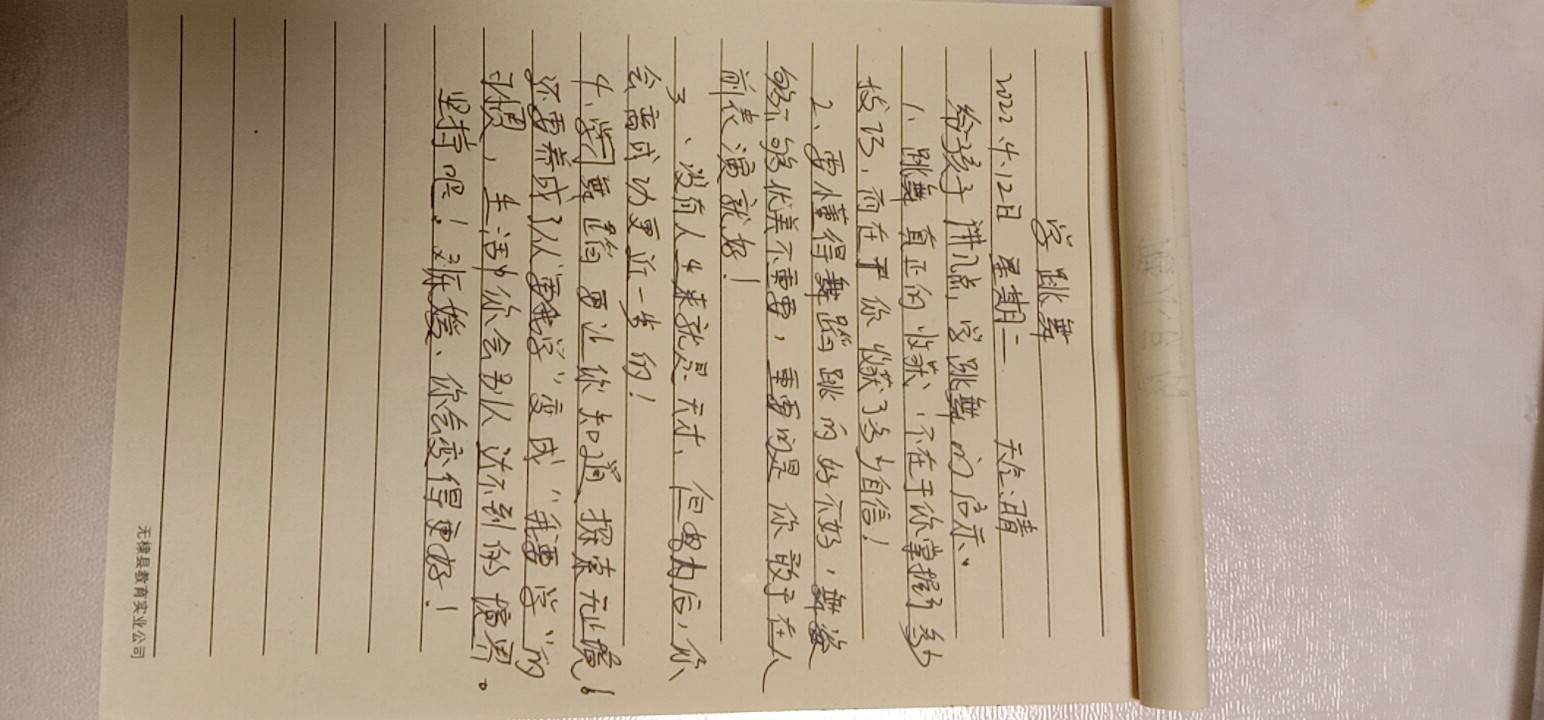 学跳舞
2022.4.12日 星期二 天气:晴
给孩子讲几点,学跳舞的启示。
1、跳舞真正的收获,不在乎你掌握了多少
技巧,而在乎你收获了多少自信!
2、要懂得舞蹈跳的好不好,舞姿
够不够优美不重要,重要的是你敢于在人
前表演就好!
3、没有人生来就是天才、但努力后,你
会离成功更近一步的!
4、学习舞蹈要让你知道探索无止境!
还要养成了从“要我学”变成“我要学”的
习惯,生活中你会别人达不到的境界。
坚持吧!、你会变得更好!
无棣县教育实业公司